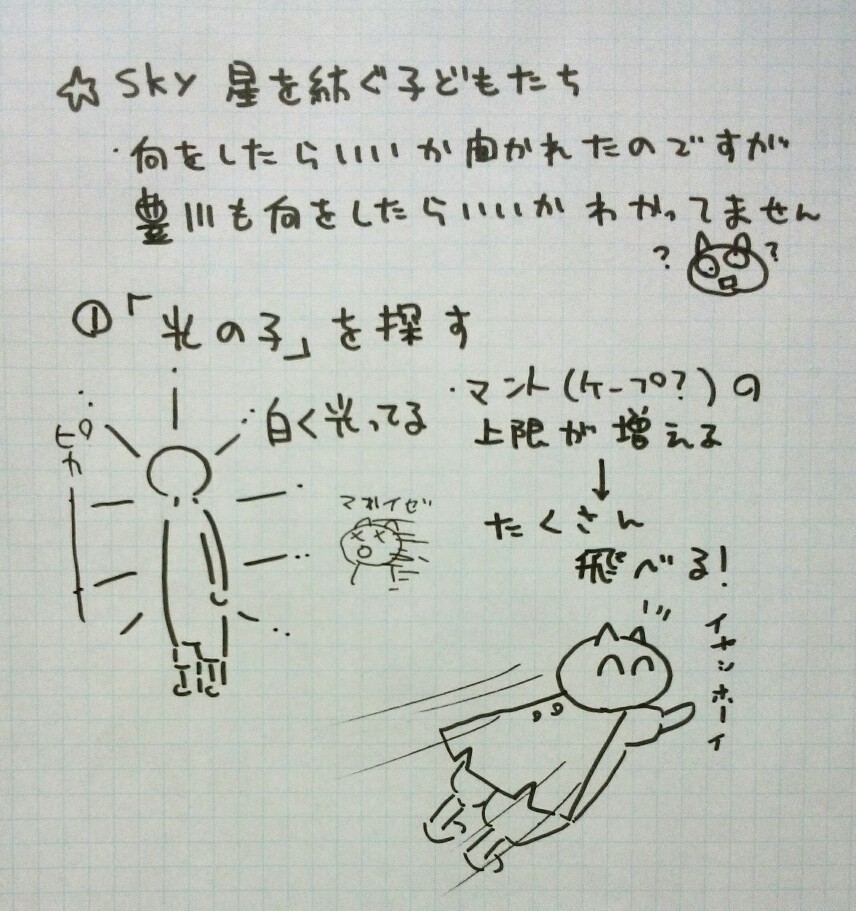 ☆ Sky 星を紡ぐ子どもたち
・何をしたらいいか聞かれたのですが
豊川も何をしたらいいかわかってません
? ?
①「光の子」を探す
ピカー
白く光ってる
マブイゼ
・マント(ケープ?)の
上限が増える
↓
たくさん
飛べる!
イヤッホーイ